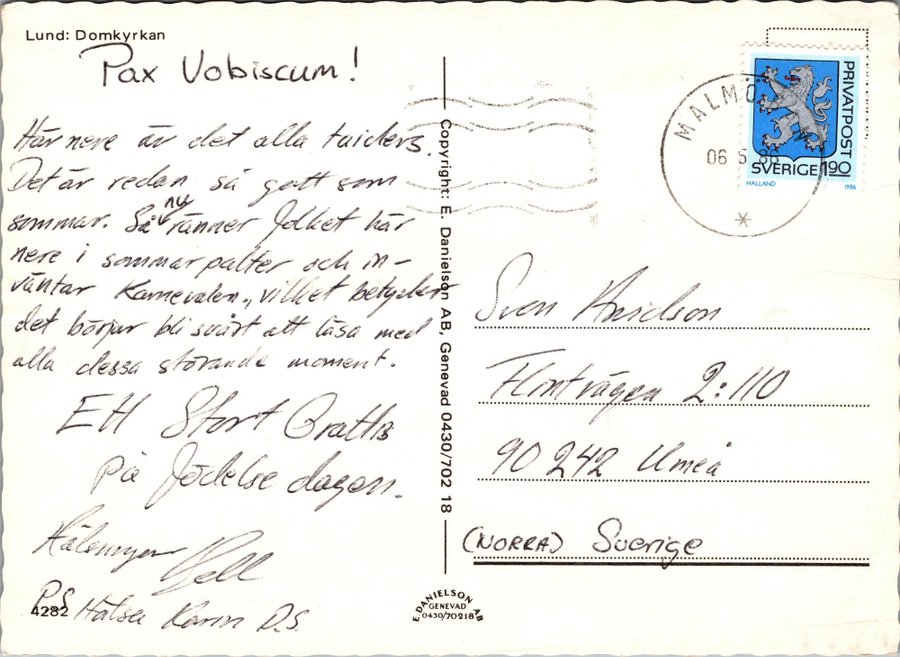 Lund: Domkyrkan
Pax Vobiscum!
Här nere är det alla tuiders.
Det är redan så gott som
sommar. Så nu ränner folket här
nere i sommarpalter och in-
väntar Karnevalen, vilket betyder
det börjar bli svårt att läsa med
alla dessa störande moment.
Ett Stort Grattis
på födelsedagen.
Hälsningar
P.S Hälsa Karin D.S.
4282
Copyright: E. Danielson AB, Genevad 0430/702 18
E. DANIELSON AB
GENEVAD
0430/70218
MALMÖ
06 5 86
PRIVATPOST
SVERIGE 1.90
HALLAND
1986
Sven
Flintvägen 2:110
90242 Umeå
(NORRA) Sverige